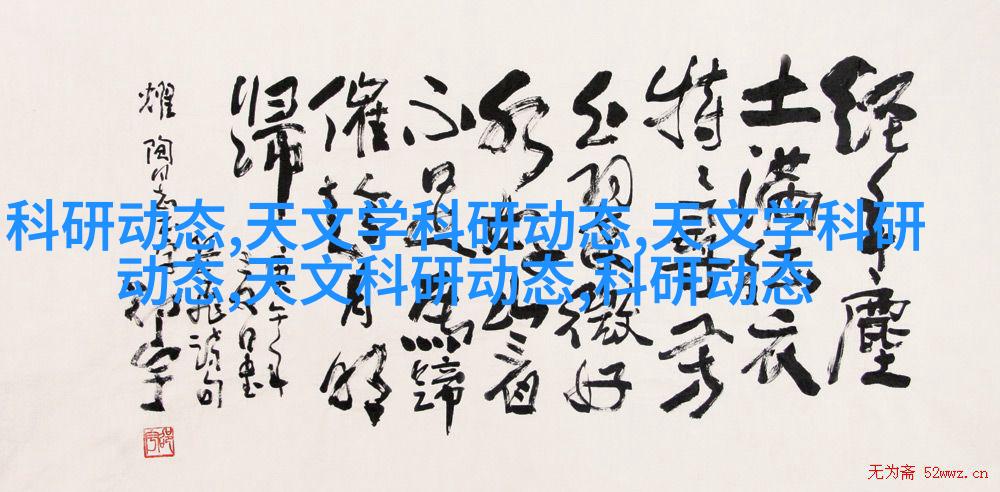 科研动态,天文学科研动态,天文学科研
动态,天文科研动态,科研动态
经年塵
土满征衣
特〻寻芳
上翠微好
水好山看
不足馬蹄
催趁月明
歸
岳飛诗句
无为斋 52wwz.cn